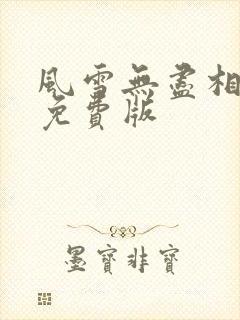 風雪無盡相
免費版
墨寶非寶